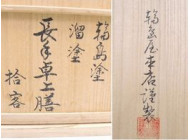 輪島塗
溜塗
長手卓上膳
拾客
輪島屋本店謹製